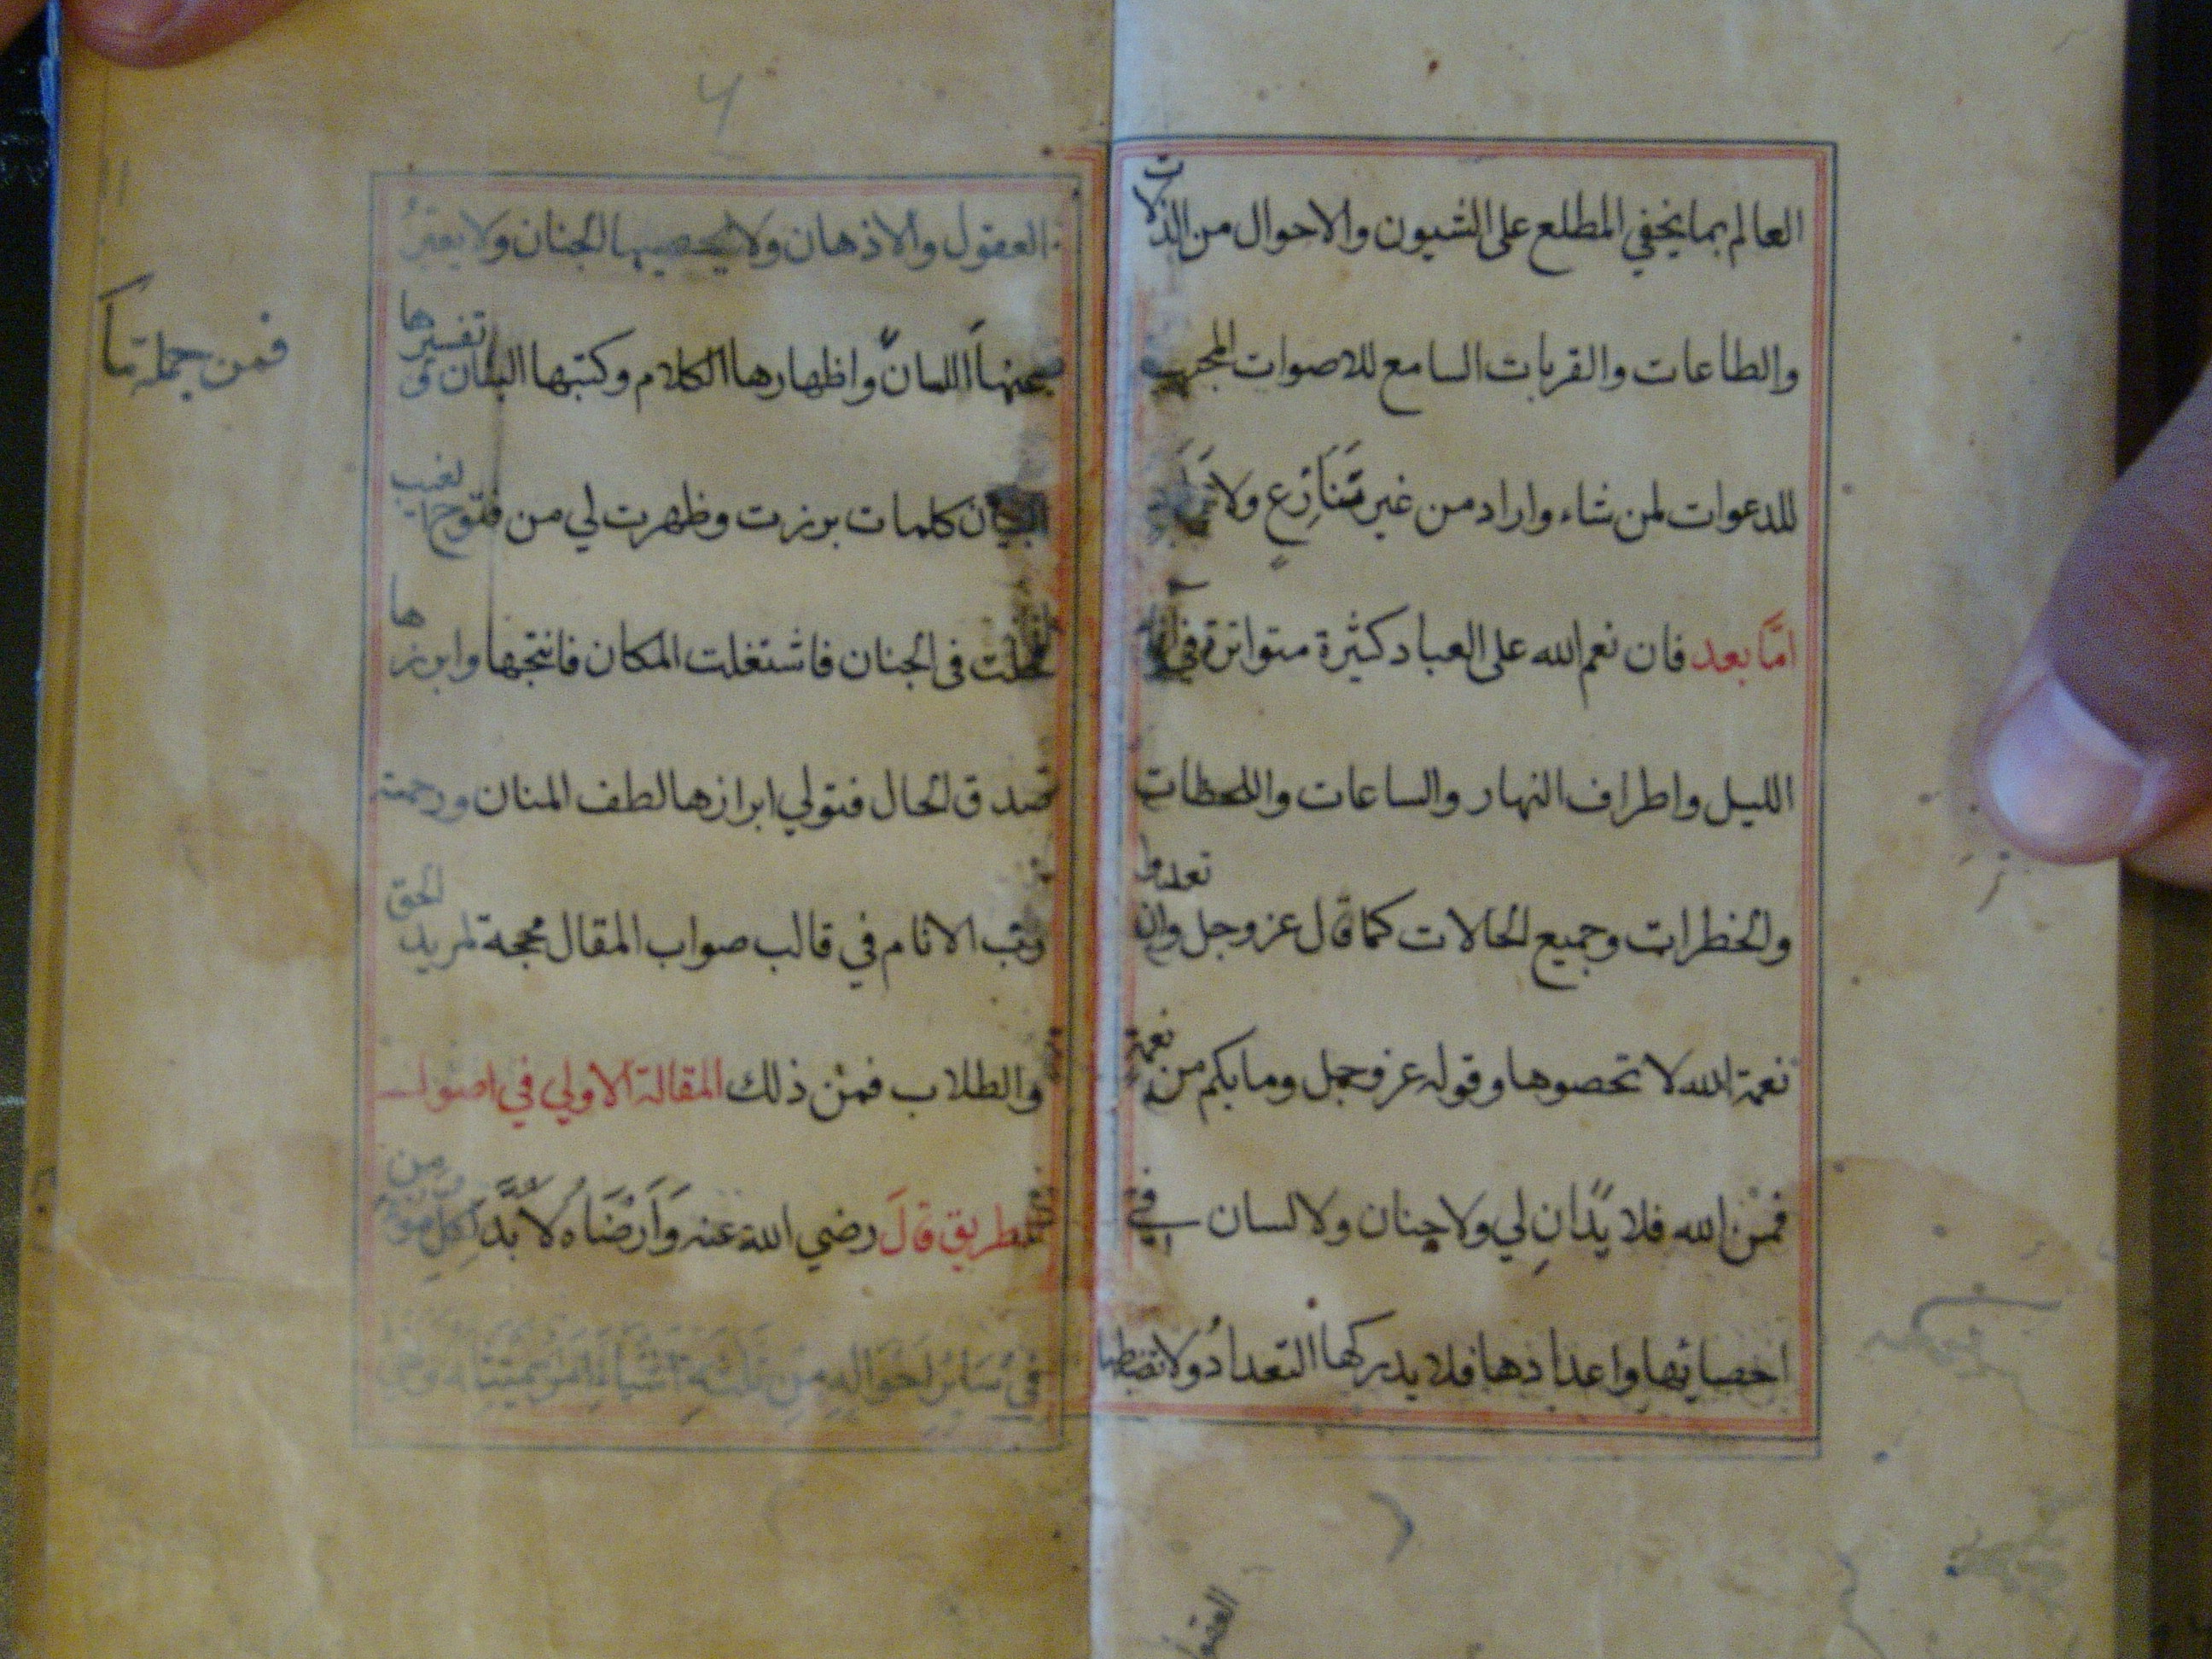 العالم بما يخفي المطلع على الشيون والاحوال من الذلات
والطاعات والقربات السامع للاصوات المجيب
للدعوات لمن شاء واراد من غير تَنَازِعٍ ولا
امّا بعد فان نعم الله على العباد كثيرة متواترة في
الليل واطراف النهار والساعات واللحظات
والخطرات وجميع الحالات كما قال عز وجل وان تعدوا
نعمة الله لا تحصوها وقوله عز وجل وما بكم من نعمة
فمن الله فلا يدَانِ لي ولا جنان ولا لسان في
احصائها واعدادها فلا يدركها التعدادُ ولا تضبطها
العقو
٦
العقول والاذهان ولا يحصيها الجنان ولا يعبرُ
عنها اللسان واظهارها الكلام وكتبها البنان و تفسيرها
فمن جملة ما
البيان كلمات برزت وظهرت لي من فتوح الغيب
فحلت في الجنان فاشتغلت المكان فانتجها وابرزها
صدق الحال فتولي ابرازها لطف المنان ورحمة
رب الانام في قالب صواب المقال محجة لمريد الحق
والطلاب فمن ذلك المقالة الاولي في اصول
الطريق قالَ رضي الله عنه وَاَرْضَاهُ لاَ بُدَّ لِكُلِّ مؤمن من
في سَايْرِ اَحْوَالِهِ مِنْ ثَلثَةِ اَشْيَاءَ اَمْرٍ يَمْتَثِلُهُ وَنَهْيٍ